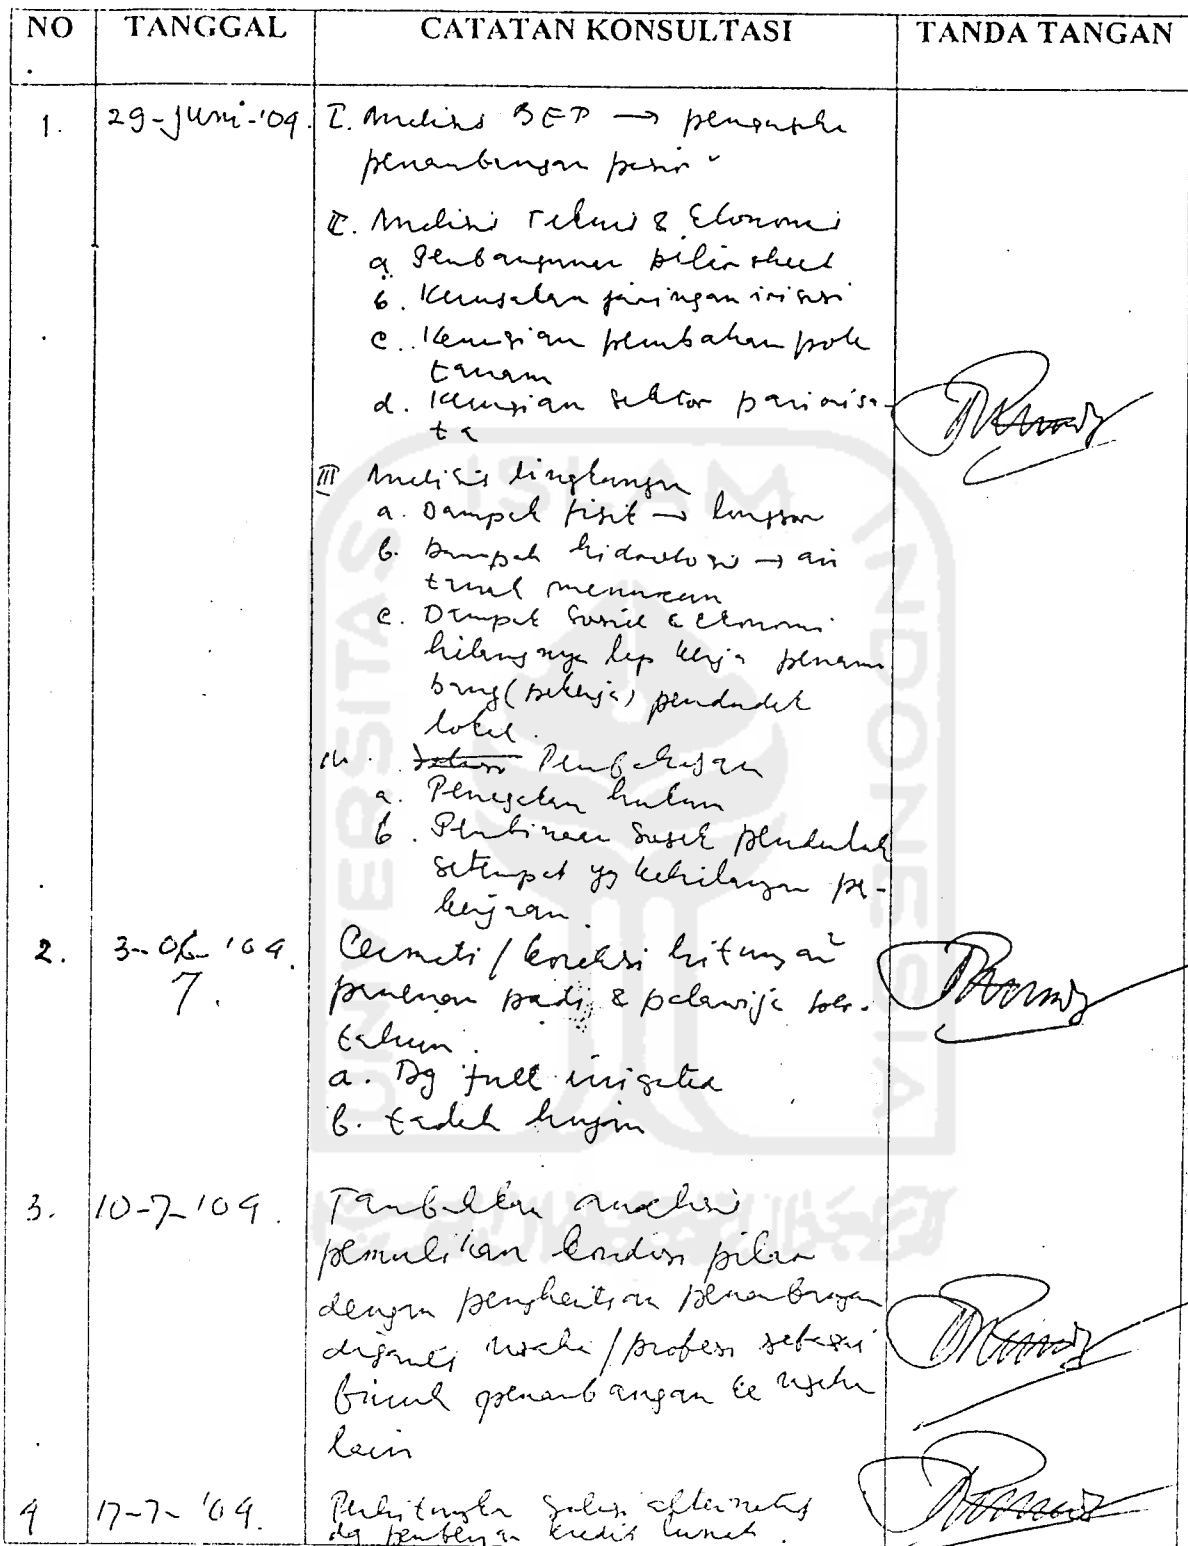 NO TANGGAL CATATAN KONSULTASI TANDA TANGAN
.
1. 29-Juni-'09. I. Analisis BEP → pengusaha
penambangan pasir
II. Analisis Teknis & Ekonomi
a. Pembangunan pilar sheet
b. Kerusakan jaringan irigasi
c. Kerugian perubahan pola
tanam
d. Kerugian sektor pariwisa-
ta
III Analisis lingkungan
a. Dampak fisik → longsor
b. Dampak hidrologi → air
tanah menurun
c. Dampak Sosial & ekonomi
hilangnya lap kerja penam
bang (pekerja) penduduk
lokal.
Pembahasan
a. Penegakan hukum
b. Pembinaan Sosek penduduk
setempat yg kehilangan pe-
kerjaan.
2. 3-06-'09. Cermati / koreksi hitungan
7. panenan padi & palawija per-
tahun.
a. Dg full irrigated
b. tadah hujan
3. 10-7-'09. Tambahkan analisis
pemulihan kondisi pilar
dengan penghentian penambangan
diganti usaha / profesi sebagai
buruh penambangan ke usaha
lain
4 17-7-'09. Perhitungkan Solusi alternatif
dg pemberian kredit lunak.
UNIVERSITAS ISLAM INDONESIA